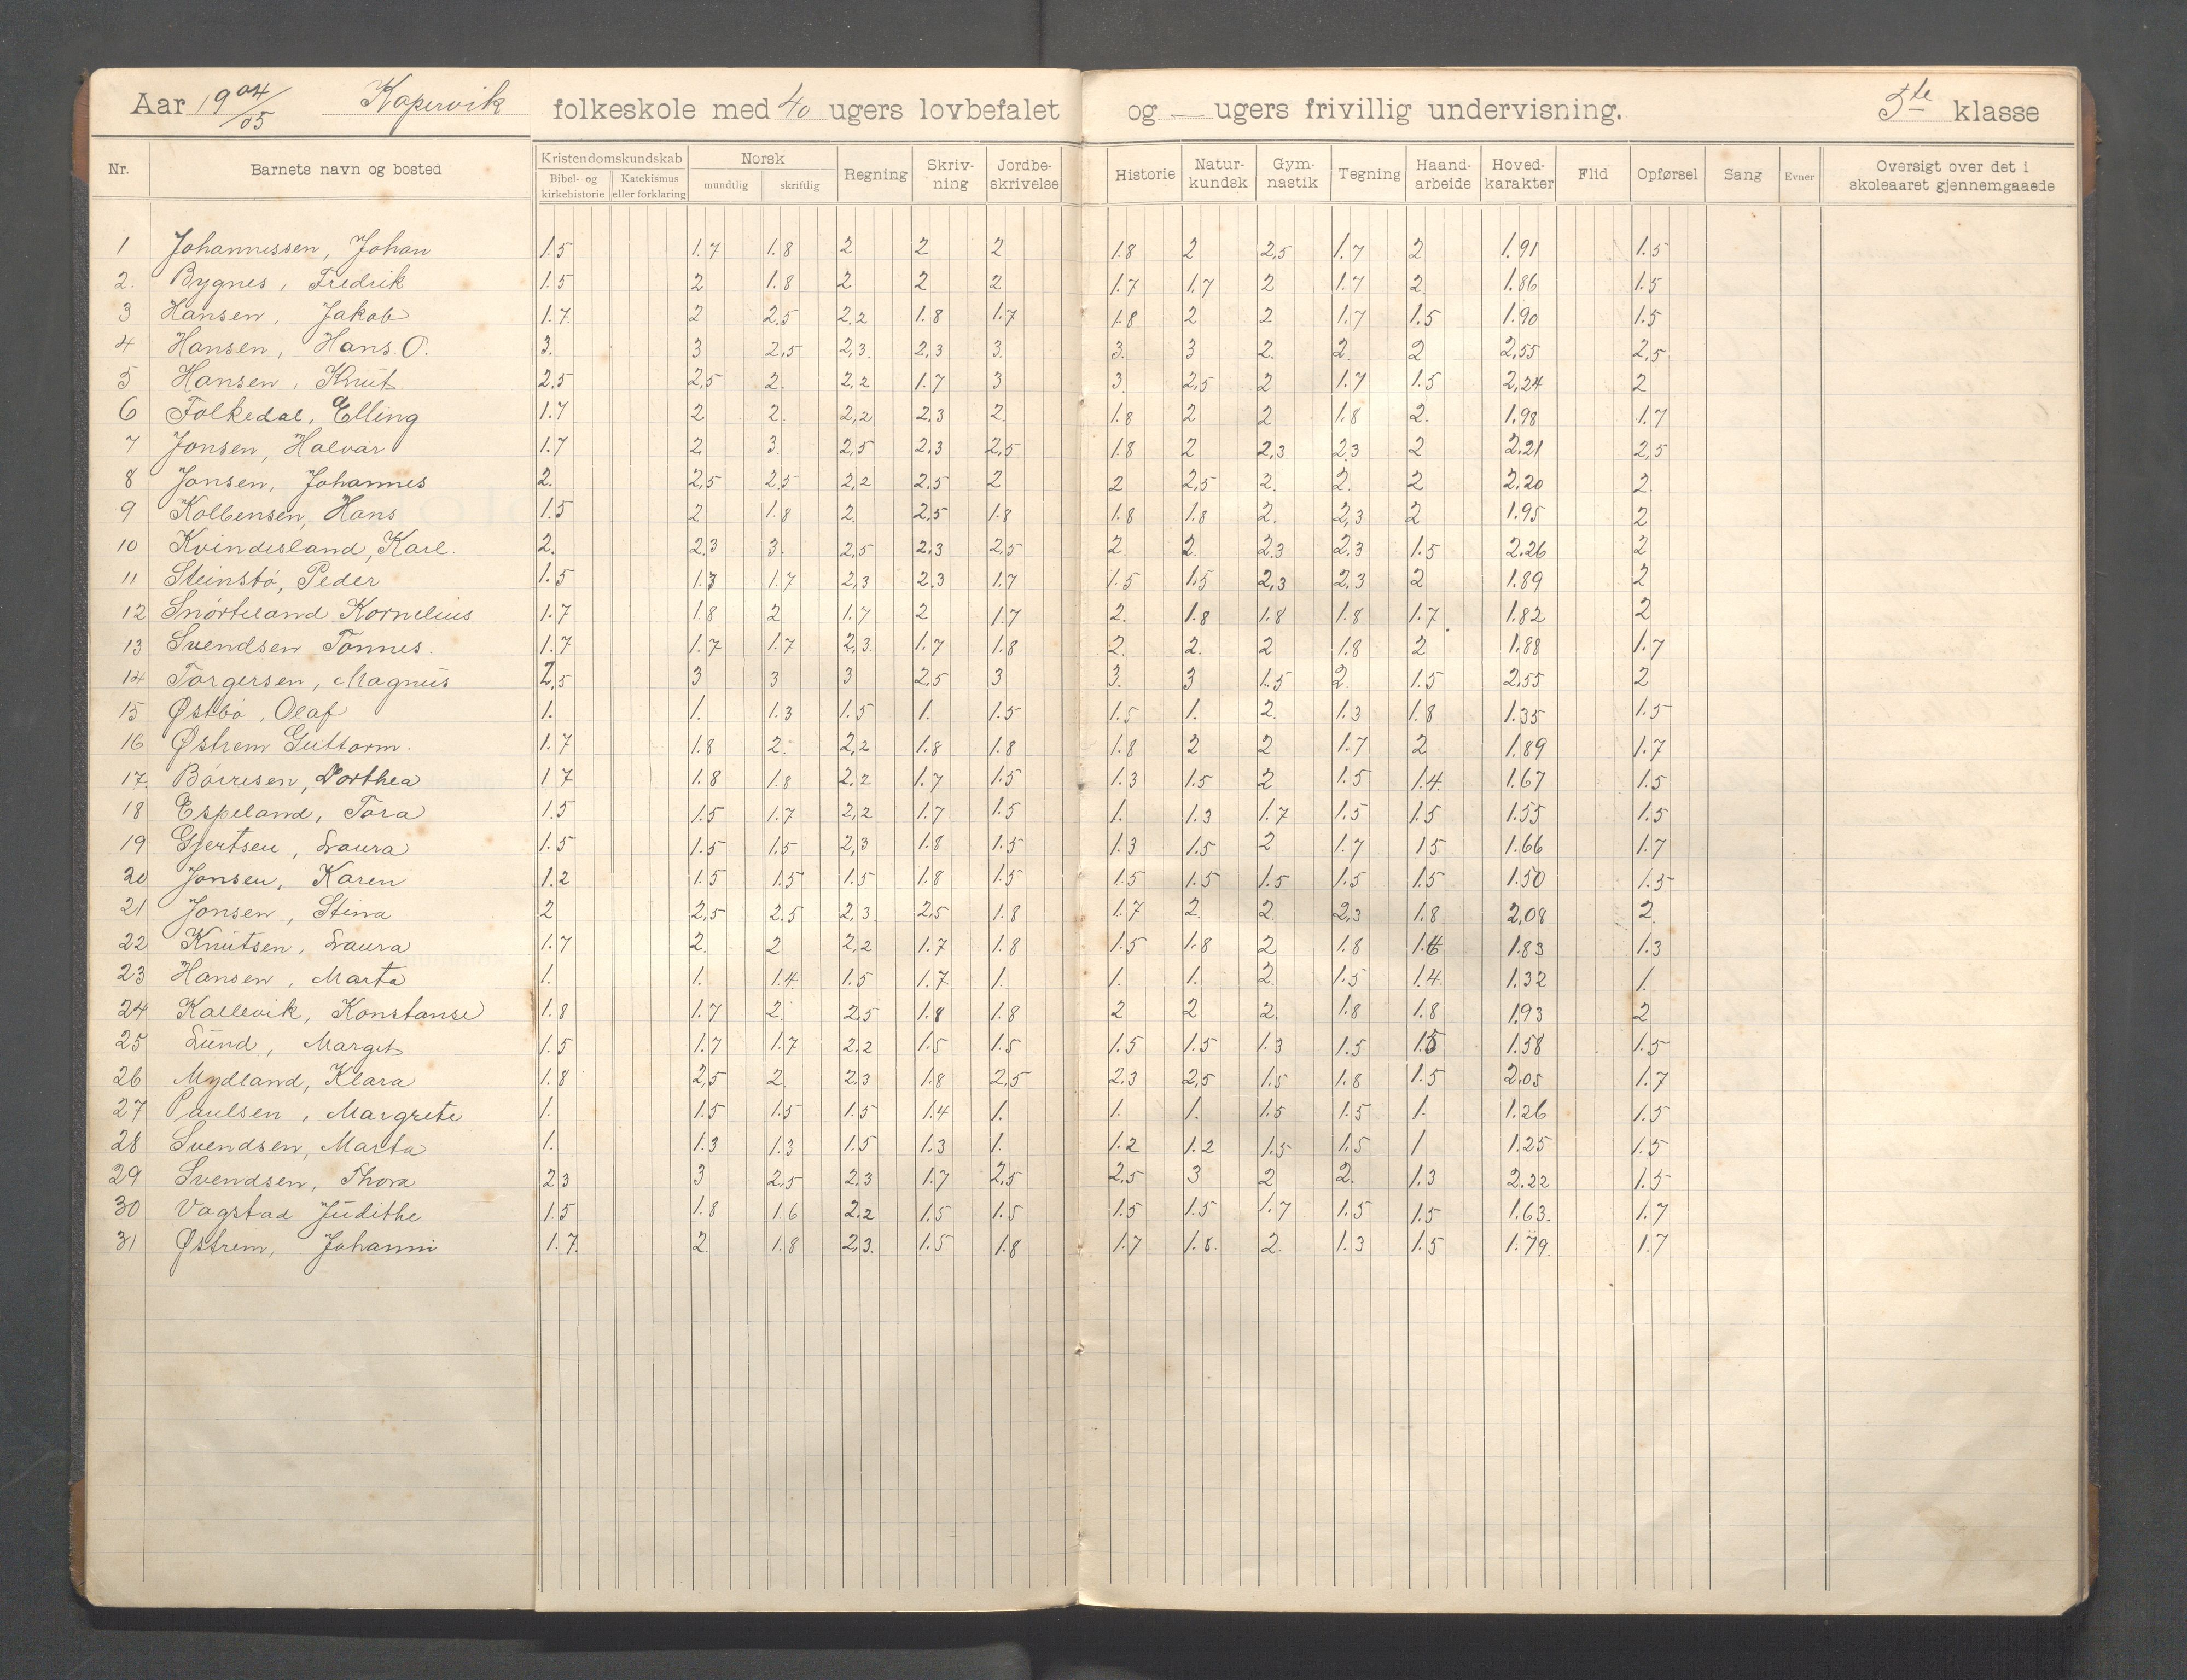 Aar 19 04/05 Kopervik folkeskole med 40 ugers lovbefalet og — ugers frivillig undervisning. 5te klasse
Nr. Barnets navn og bosted Kristendomskundskab Norsk Regning Skriv-ning Jordbe-skrivelse Historie Natur-kundsk Gym-nastik Tegning Haand-arbeide Hoved-karakter Flid Opførsel Sang Evner Oversigt over det i skoleaaret gjennemgaaede
Bibel- og kirkehistorie Katekismus eller forklaring mundtlig skriftlig
1 Johannessen, Johan 1.5 1.7 1.8 2 2 2 1.8 2 2,5 1.7 2 1.91 1.5
2. Bygnes, Fredrik 1.5 2 1.8 2 2 2 1.7 1.7 2 1.7 2 1.86 1.5
3 Hansen, Jakob 1.7 2 2.5 2.2 1.8 1.7 1.8 2 2 1.7 1.5 1.90 1.5
4 Hansen, Hans. O. 3. 3 2,5 2,3. 2,3 3. 3. 3 2. 2. 2 2,55 2,5
5 Hansen, Knut 2,5 2,5 2. 2,2 1.7 3 3. 2,5 2 1.7 1.5 2,24 2
6 Folkedal, Elling 1.7 2 2. 2,2 2.3 2. 1.8 2 2 1.8 2. 1.98 1.7
7 Jonsen, Halvar 1.7 2 3. 2,5 2.3 2,5 1.8 2 2,3 2,3 2 2.21 2,5
8 Jonsen, Johannes 2. 2,5 2.5 2,2 2,5 2 2 2,5 2. 2. 2 2.20 2.
9 Kolbensen, Hans 1.5 2 1.8 2 2,5 1.8 1.8 1.8 2. 2,3 2 1.95 2
10 Kvindesland, Karl. 2. 2.3 3. 2,5 2.3 2,5 2. 2. 2,3 2.3 1.5 2.26 2
11 Steinstø, Peder 1.5 1.7 1.7 2,3 2.3 1.7 1.5 1.5 2,3 2,3 2 1.89 2
12 Snørteland Kornelius 1.7 1.8 2 1.7 2 1.7 2. 1.8 1.8 1.8 1.7 1.82 2
13 Svendsen Tønnes. 1.7 1.7 1.7 2,3. 1.7 1.8 2. 2. 2 1.8 2 1.88 1.7
14 Torgersen, Magnus 2,5 3 3 3 2,5 3 3. 3 1.5 2. 1.5 2.55 2
15 Østbø, Olaf 1. 1. 1.3 1.5 1. 1.5 1.5 1. 2. 1.3 1.8 1.35 1.5
16 Østrem Guttorm. 1.7 1.8 2. 2,2 1.8 1.8 1.8 2 2 1.7 2 1.89 1.7
17. Børresen, Dorthea 1 7 1.8 1.8 2.2 1.7 1.5 1.3 1.5 2 1.5 1.4. 1.67 1.5
18 Espeland, Tora 1.5 1.5 1.7 2,2 1.7 1.5 1. 1.3 1.7 1.5 1.5 1.55 1.5
19 Gjertsen, Laura 1.5 1.5 1.5 2,3 1.8 1.5 1.3 1.5 2 1.7 15 1.66 1.7
20 Jonsen, Karen 1.2 1.5 1.5 1.5 1.8 1.5 1.5 1.5 1.5 1.5 1.5 1.50 1.5
21 Jonsen, Stina 2 2,5 2.5 2,3. 2,5 1.8 1.7 2. 2. 2,3 1.8 2,08 2.
22 Knutsen, Laura 1.7 2. 2 2,2 1.7 1.8 1.5 1.8 2 1.8 1.6 1.83 1.3
23 Hansen, Marta 1. 1. 1.4 1.5 1.7 1. 1. 1. 2. 1.5 1.4. 1.32 1.
24 Kallevik, Konstanse 1.8 1.7 2 2,5 1.8 1.8 2 2 2. 1.8 1.8 1.93 2
25 Lund, Marget 1.5 1.7 1.7 2.2 1.5 1.5 1.5 1.5 1.3 1.5 1.5 1.58 1.5
26 Mydland, Klara 1.8 2,5 2. 2.3 1.8 2,5 2.3 2,5 1.5 1.8 1.5 2.05 1.7
27 Paulsen, Margrete 1. 1.5 1.5 1.5 1.4 1. 1. 1. 1.5 1.5 1. 1.26 1.5
28 Svendsen, Marta 1. 1.3 1.3 1.5 1.3 1. 1.2 1.2 1.5 1.5 1 1.25 1.5
29 Svendsen, Thora 2 3 3 2,5 2,3 1.7 2,5 2,5 3 2 2. 1.3 2.22 1.5
30 Vagstad Judithe 1.5 1.8 1.6 2.2 1.5 1.5 1.5 1.5 1.7 1.5 1.5 1.63. 1.7
31 Østrem, Johanni 1.7. 2. 1.8 2,3. 1.5 1.8 1.7 1.8. 2. 1.3 1.5 1.79. 1.7